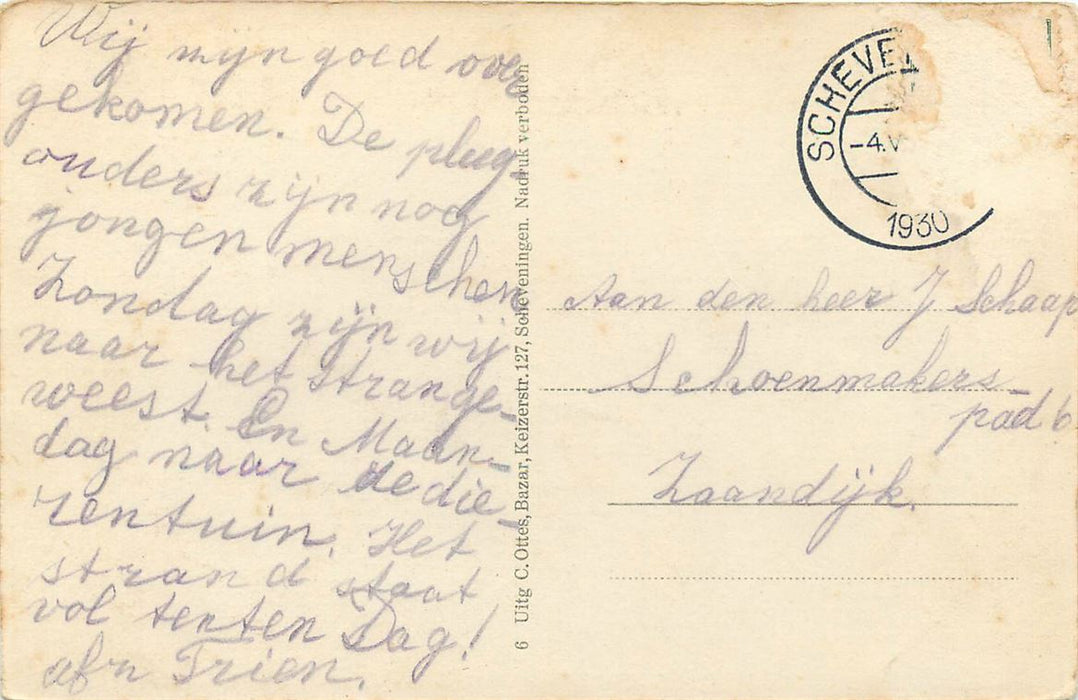 Wij zijn goed over
gekomen. De pleeg-
ouders zijn nog
jongen menschen
Zondag zijn wij
naar het strange-
weest. En Maan-
dag naar de die-
rentuin. Het
strand staat
vol tenten Dag!
afz Trien.
6 Uitg C. Ottes, Bazar, Keizerstr. 127, Scheveningen. Nadruk verboden
SCHEVE
-4.V
1930
Aan den heer J Schaap
Schoenmakers-
pad 6
Zaandijk.